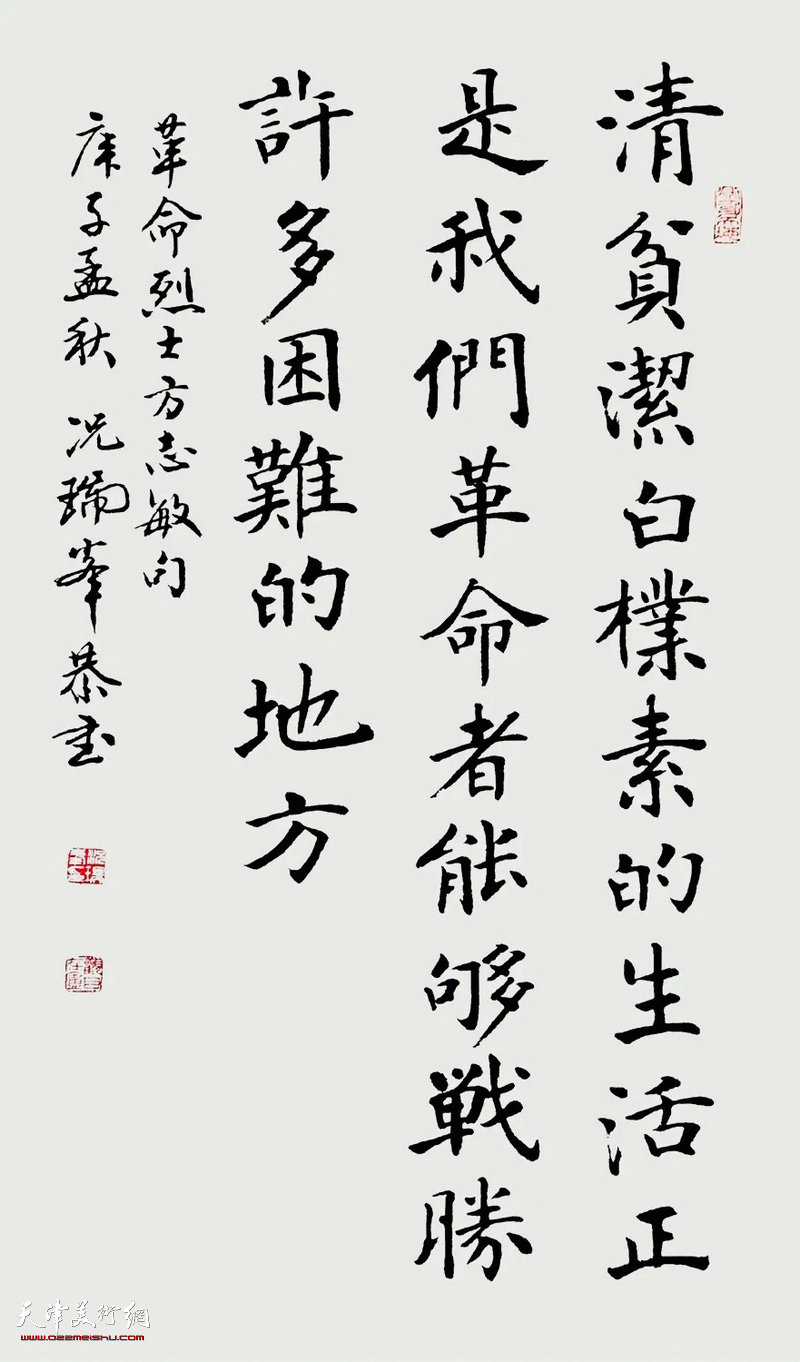 清貧潔白樸素的生活正
是我們革命者能够戰勝
許多困難的地方
革命烈士方志敏句
庚子孟秋 况瑞峯恭书
天津美術網
www.022meishu.com